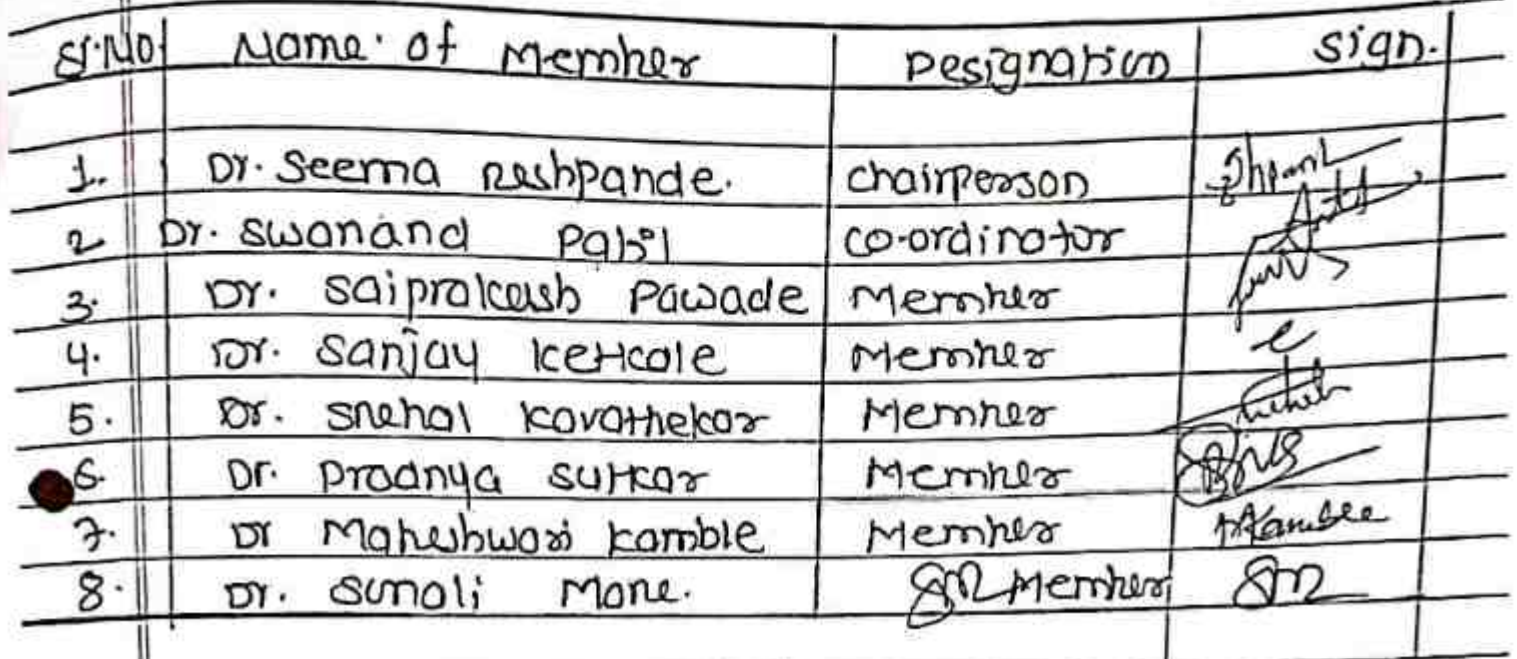 Sr.No Name. of Member Designation sign.
1. Dr. Seema Deshpande. chairperson
2 Dr. Swanand Patil co-ordinator
3. Dr. Saiprakash Pawade Member
4. Dr. Sanjay Ketkale Member
5. Dr. Snehal Kavathekar Member
6. Dr. Pradnya Sutkar Member
7. Dr Maheshwari Kamble Member MKamble
8. Dr. Sonali Mane. SM Member SM